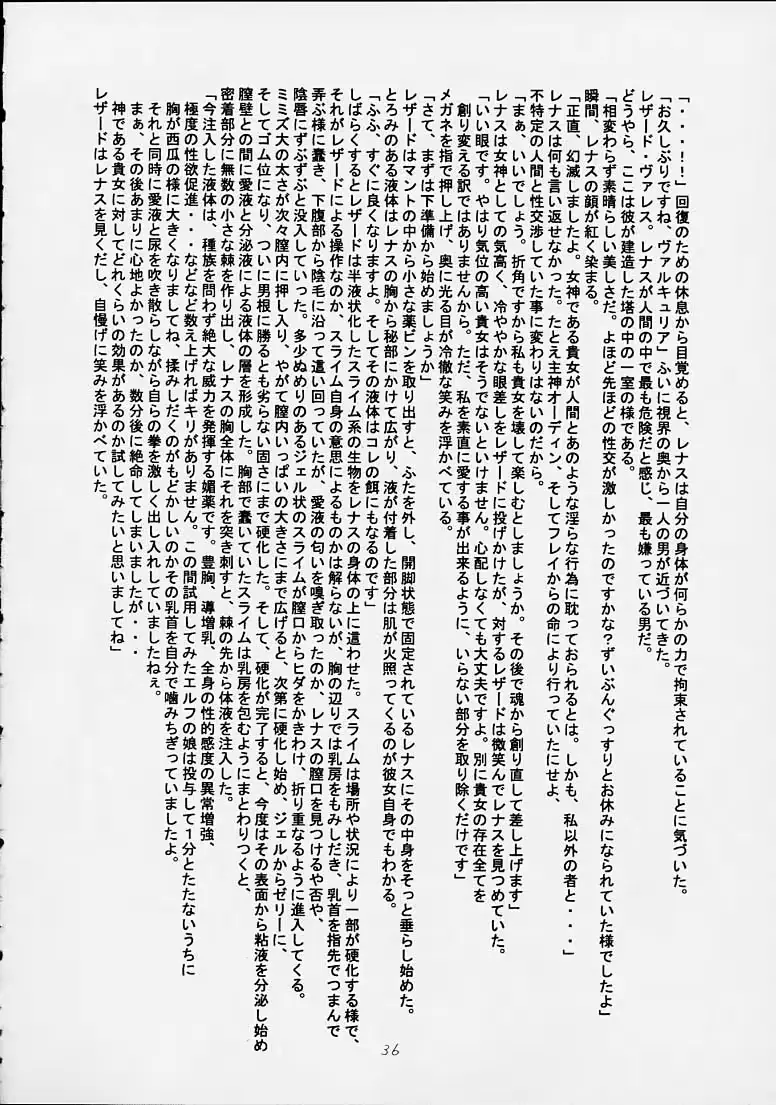 「・・・！！」回復のための休息から目覚めると、レナスは自分の身体が何らかの力で拘束されていることに気づいた。
「お久しぶりですね、ヴァルキュリア」ふいに視界の奥から一人の男が近づいてきた。
レザード・ヴァレス。レナスが人間の中で最も危険だと感じ、最も嫌っている男だ。
どうやら、ここは彼が建造した塔の中の一室の様である。
「相変わらず素晴らしい美しさだ。よほど先ほどの性交が激しかったのですかな？ずいぶんぐっすりとお休みになられていた様でしたよ」
瞬間、レナスの顔が紅く染まる。
「正直、幻滅しましたよ。女神である貴女が人間とあのような淫らな行為に耽っておられるとは。しかも、私以外の者と・・・」
レナスは何も言い返せなかった。たとえ主神オーディン、そしてフレイからの命により行っていたにせよ、
不特定の人間と性交渉していた事に変わりはないのだから。
「まぁ、いいでしょう。折角ですから私も貴女を壊して楽しむとしましょうか。その後で魂から創り直して差し上げます」
レナスは女神としての気高く、冷ややかな眼差しをレザードに投げかけたが、対するレザードは微笑んでレナスを見つめていた。
「いい眼です。やはり気位の高い貴女はそうでないといけません。心配しなくても大丈夫ですよ。別に貴女の存在全てを
創り変える訳ではありませんから。ただ、私を素直に愛する事が出来るように、いらない部分を取り除くだけです」
メガネを指で押し上げ、奥に光る目が冷徹な笑みを浮かべている。
「さて、まずは下準備から始めましょうか」
レザードはマントの中から小さな薬ビンを取り出すと、ふたを外し、開脚状態で固定されているレナスにその中身をそっと垂らし始めた。
とろみのある液体はレナスの胸から秘部にかけて広がり、液が付着した部分は肌が火照ってくるのが彼女自身でもわかる。
「ふふ、すぐに良くなりますよ。そしてその液体はコレの餌にもなるのです」
しばらくするとレザードは半液状化したスライム系の生物をレナスの身体の上に這わせた。スライムは場所や状況により一部が硬化する様で、
それがレザードによる操作なのか、スライム自身の意思によるものかは解らないが、胸の辺りでは乳房をもみしだき、乳首を指先でつまんで
弄ぶ様に蠢き、下腹部から陰毛に沿って這い回っていたが、愛液の匂いを嗅ぎ取ったのか、レナスの膣口を見つけるや否や、
陰唇にずぶずぶと没入していった。多少ぬめりのあるジェル状のスライムが膣口からヒダをかきわけ、折り重なるように進入してくる。
ミミズ大の太さが次々膣内に押し入り、やがて膣内いっぱいの大きさにまで広げると、次第に硬化し始め、ジェルからゼリーに、
そしてゴム位になり、ついに男根に勝るとも劣らない固さにまで硬化した。そして、硬化が完了すると、今度はその表面から粘液を分泌し始め
膣壁との間に愛液と分泌液による液体の層を形成した。胸部で蠢いていたスライムは乳房を包むようにまとわりつくと、
密着部分に無数の小さな棘を作り出し、レナスの胸全体にそれを突き刺すと、棘の先から体液を注入した。
「今注入した液体は、種族を問わず絶大な威力を発揮する媚薬です。豊胸、導増乳、全身の性的感度の異常増強、
極度の性欲促進・・・などなど数え上げればキリがありません。この間試用してみたエルフの娘は投与して１分とたたないうちに
胸が西瓜の様に大きくなりましてね、揉みしだくのがもどかしいのかその乳首を自分で噛みちぎっていましたよ。
それと同時に愛液と尿を吹き散らしながら自らの拳を激しく出し入れしていましたねぇ。
まぁ、その後あまりに心地よかったのか、数分後に絶命してしまいましたが・・・
神である貴女に対してどれくらいの効果があるのか試してみたいと思いましてね」
レザードはレナスを見くだし、自慢げに笑みを浮かべていた。
36